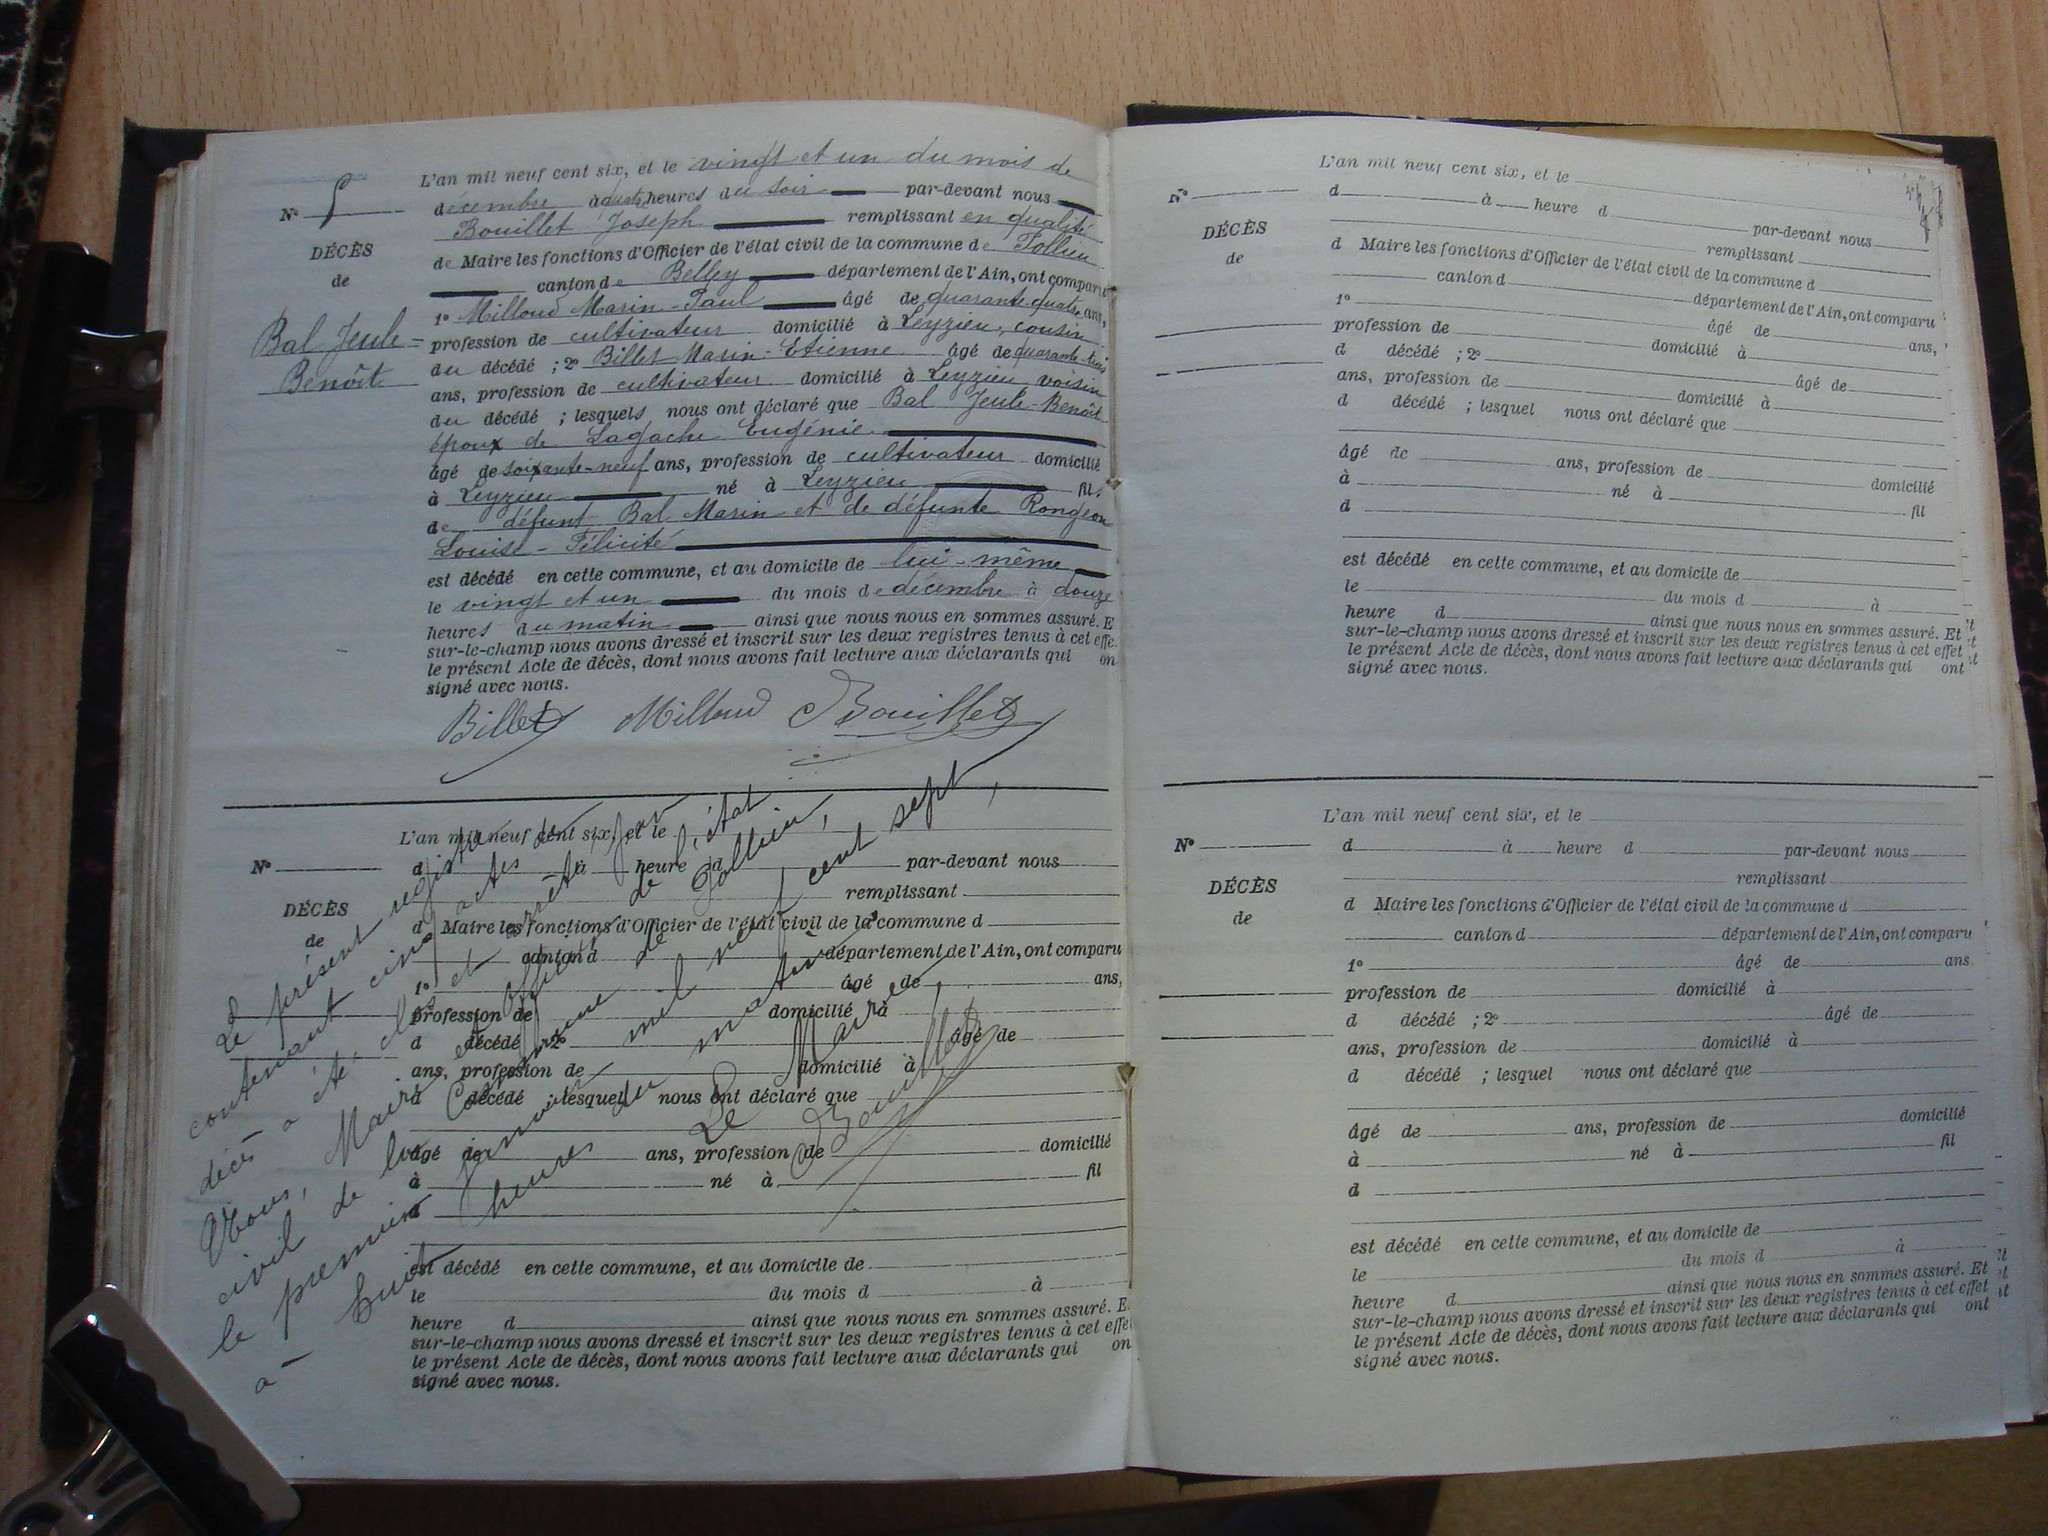 L'an mil neuf cent six, et le vingt et un du mois de
N° 5
décembre à quatre heures du soir par-devant nous
Bouillet Joseph remplissant en qualité
DÉCÈS
de
de Maire les fonctions d'Officier de l'état civil de la commune de Pollieu
canton de Belley département de l'Ain, ont comparu
1° Milloud Marin-Paul âgé de quarante-quatre ans,
Bal Jeule-
Benoît
profession de cultivateur domicilié à Leyzieu, cousin
du décédé ; 2° Billet Marin-Etienne âgé de quarante-trois
ans, profession de cultivateur domicilié à Leyzieu, voisin
du décédé ; lesquels nous ont déclaré que Bal Jeule-Benoît
époux de Lagache Eugénie
âgé de soixante-neuf ans, profession de cultivateur domicilié
à Leyzieu né à Leyzieu fils
de défunt Bal Marin et de défunte Rongeon
Louise-Félicité
est décédé en cette commune, et au domicile de lui-même
le vingt et un du mois de décembre à douze
heures du matin ainsi que nous nous en sommes assuré. E
sur-le-champ nous avons dressé et inscrit sur les deux registres tenus à cet effe
le présent Acte de décès, dont nous avons fait lecture aux déclarants qui on
signé avec nous.
Billet Milloud Bouillet
L'an mil neuf cent six, et le
N°
d à heure d par-devant nous
remplissant
DÉCÈS
de
d Maire les fonctions d'Officier de l'état civil de la commune d
canton d département de l'Ain, ont comparu
1° âgé de ans,
profession de domicilié à
d décédé 2° âgé de
ans, profession de domicilié à
d décédé ; lesquel nous ont déclaré que
âgé de ans, profession de domicilié
à né à fil
d
est décédé en cette commune, et au domicile de
le du mois d à
heure d ainsi que nous nous en sommes assuré. E
sur-le-champ nous avons dressé et inscrit sur les deux registres tenus à cet effet
le présent Acte de décès, dont nous avons fait lecture aux déclarants qui on
signé avec nous.
Le présent registre
contenant cinq actes de
décès a été clos et arrêté par
Nous, Maire et Officier de l'état
civil de la Commune de Pollieu,
le premier janvier mil neuf cent sept,
à huit heures du matin
Le Maire,
Bouillet
L'an mil neuf cent six, et le
N°
d à heure d par-devant nous
remplissant
DÉCÈS
de
d Maire les fonctions d'Officier de l'état civil de la commune d
canton d département de l'Ain, ont comparu
1° âgé de ans,
profession de domicilié à
d décédé ; 2° âgé de
ans, profession de domicilié à
d décédé ; lesquel nous ont déclaré que
âgé de ans, profession de domicilié
à né à fil
d
est décédé en cette commune, et au domicile de
le du mois d à
heure d ainsi que nous nous en sommes assuré. Et
sur-le-champ nous avons dressé et inscrit sur les deux registres tenus à cet effet
le présent Acte de décès, dont nous avons fait lecture aux déclarants qui ont
signé avec nous.
L'an mil neuf cent six, et le
N°
d à heure d par-devant nous
remplissant
DÉCÈS
de
d Maire les fonctions d'Officier de l'état civil de la commune d
canton d département de l'Ain, ont comparu
1° âgé de ans.
profession de domicilié à
d décédé ; 2° âgé de
ans, profession de domicilié à
d décédé ; lesquel nous ont déclaré que
âgé de ans, profession de domicilié
à né à fil
d
est décédé en cette commune, et au domicile de
le du mois d à
heure d ainsi que nous nous en sommes assuré. Et
sur-le-champ nous avons dressé et inscrit sur les deux registres tenus à cet effet
le présent Acte de décès, dont nous avons fait lecture aux déclarants qui ont
signé avec nous.